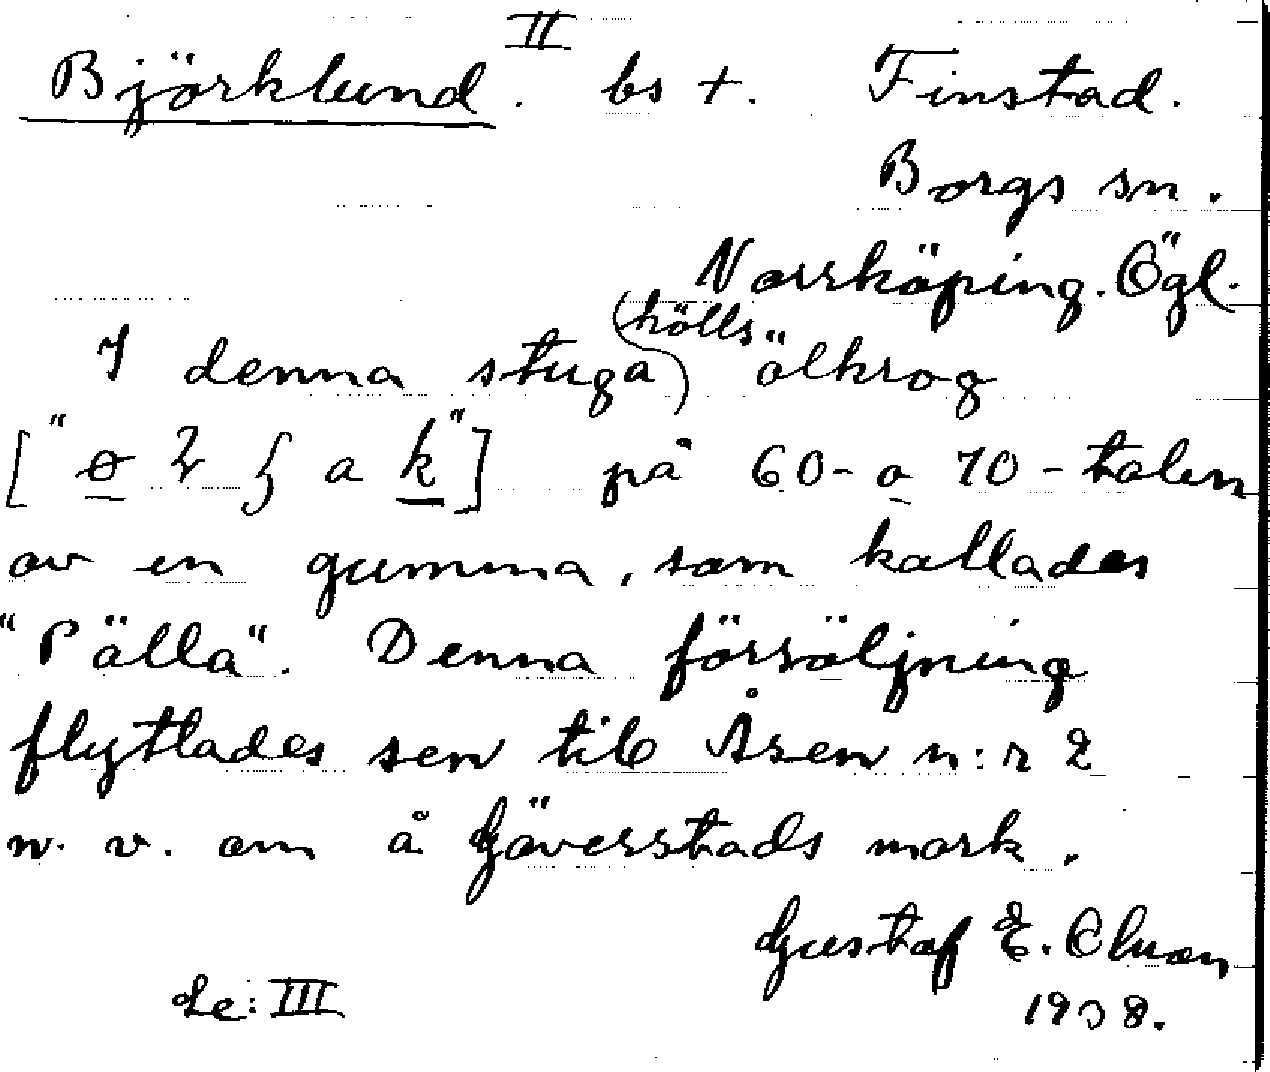 II
Björklund. bs +. Finstad.
Borgs sn.
Norrköping. Ögl.
I denna stuga (hölls) ölkrog
på 60- o 70-talen
av en gumma, som kallades
"Pälla". Denna försäljning
flyttades sen till Åsen n:r 2
n. v. om å Gäverstads mark.
Gustaf E.
Le: III 1938.